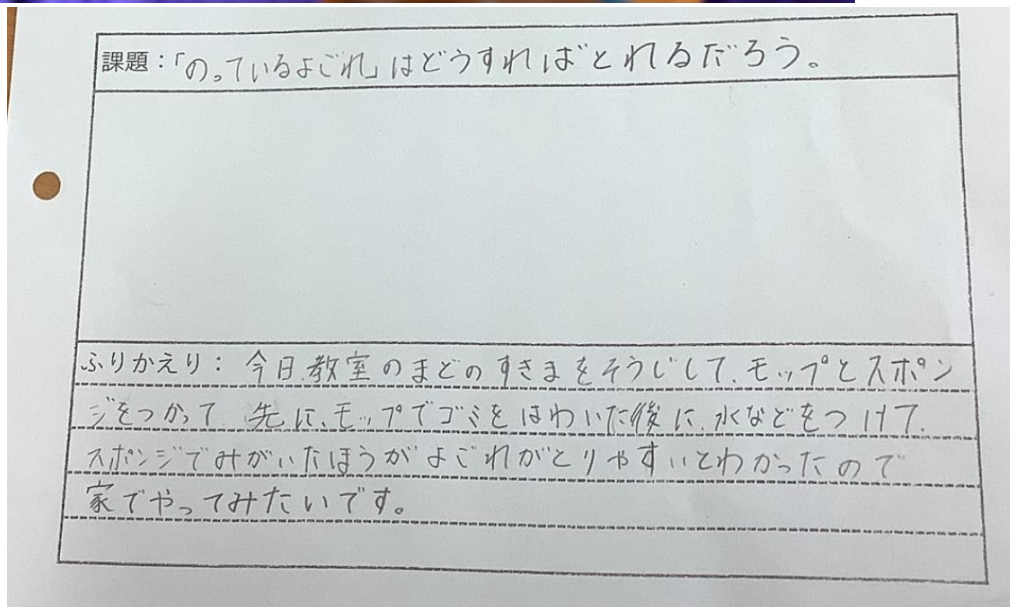 課題：「のっているよごれ」はどうすればとれるだろう。
ふりかえり：今日、教室のまどのすきまをそうじして、モップとスポン
ジをつかって、先に、モップでゴミをはわいた後に、水などをつけて、
スポンジでみがいたほうがよごれがとりやすいとわかったので
家でやってみたいです。